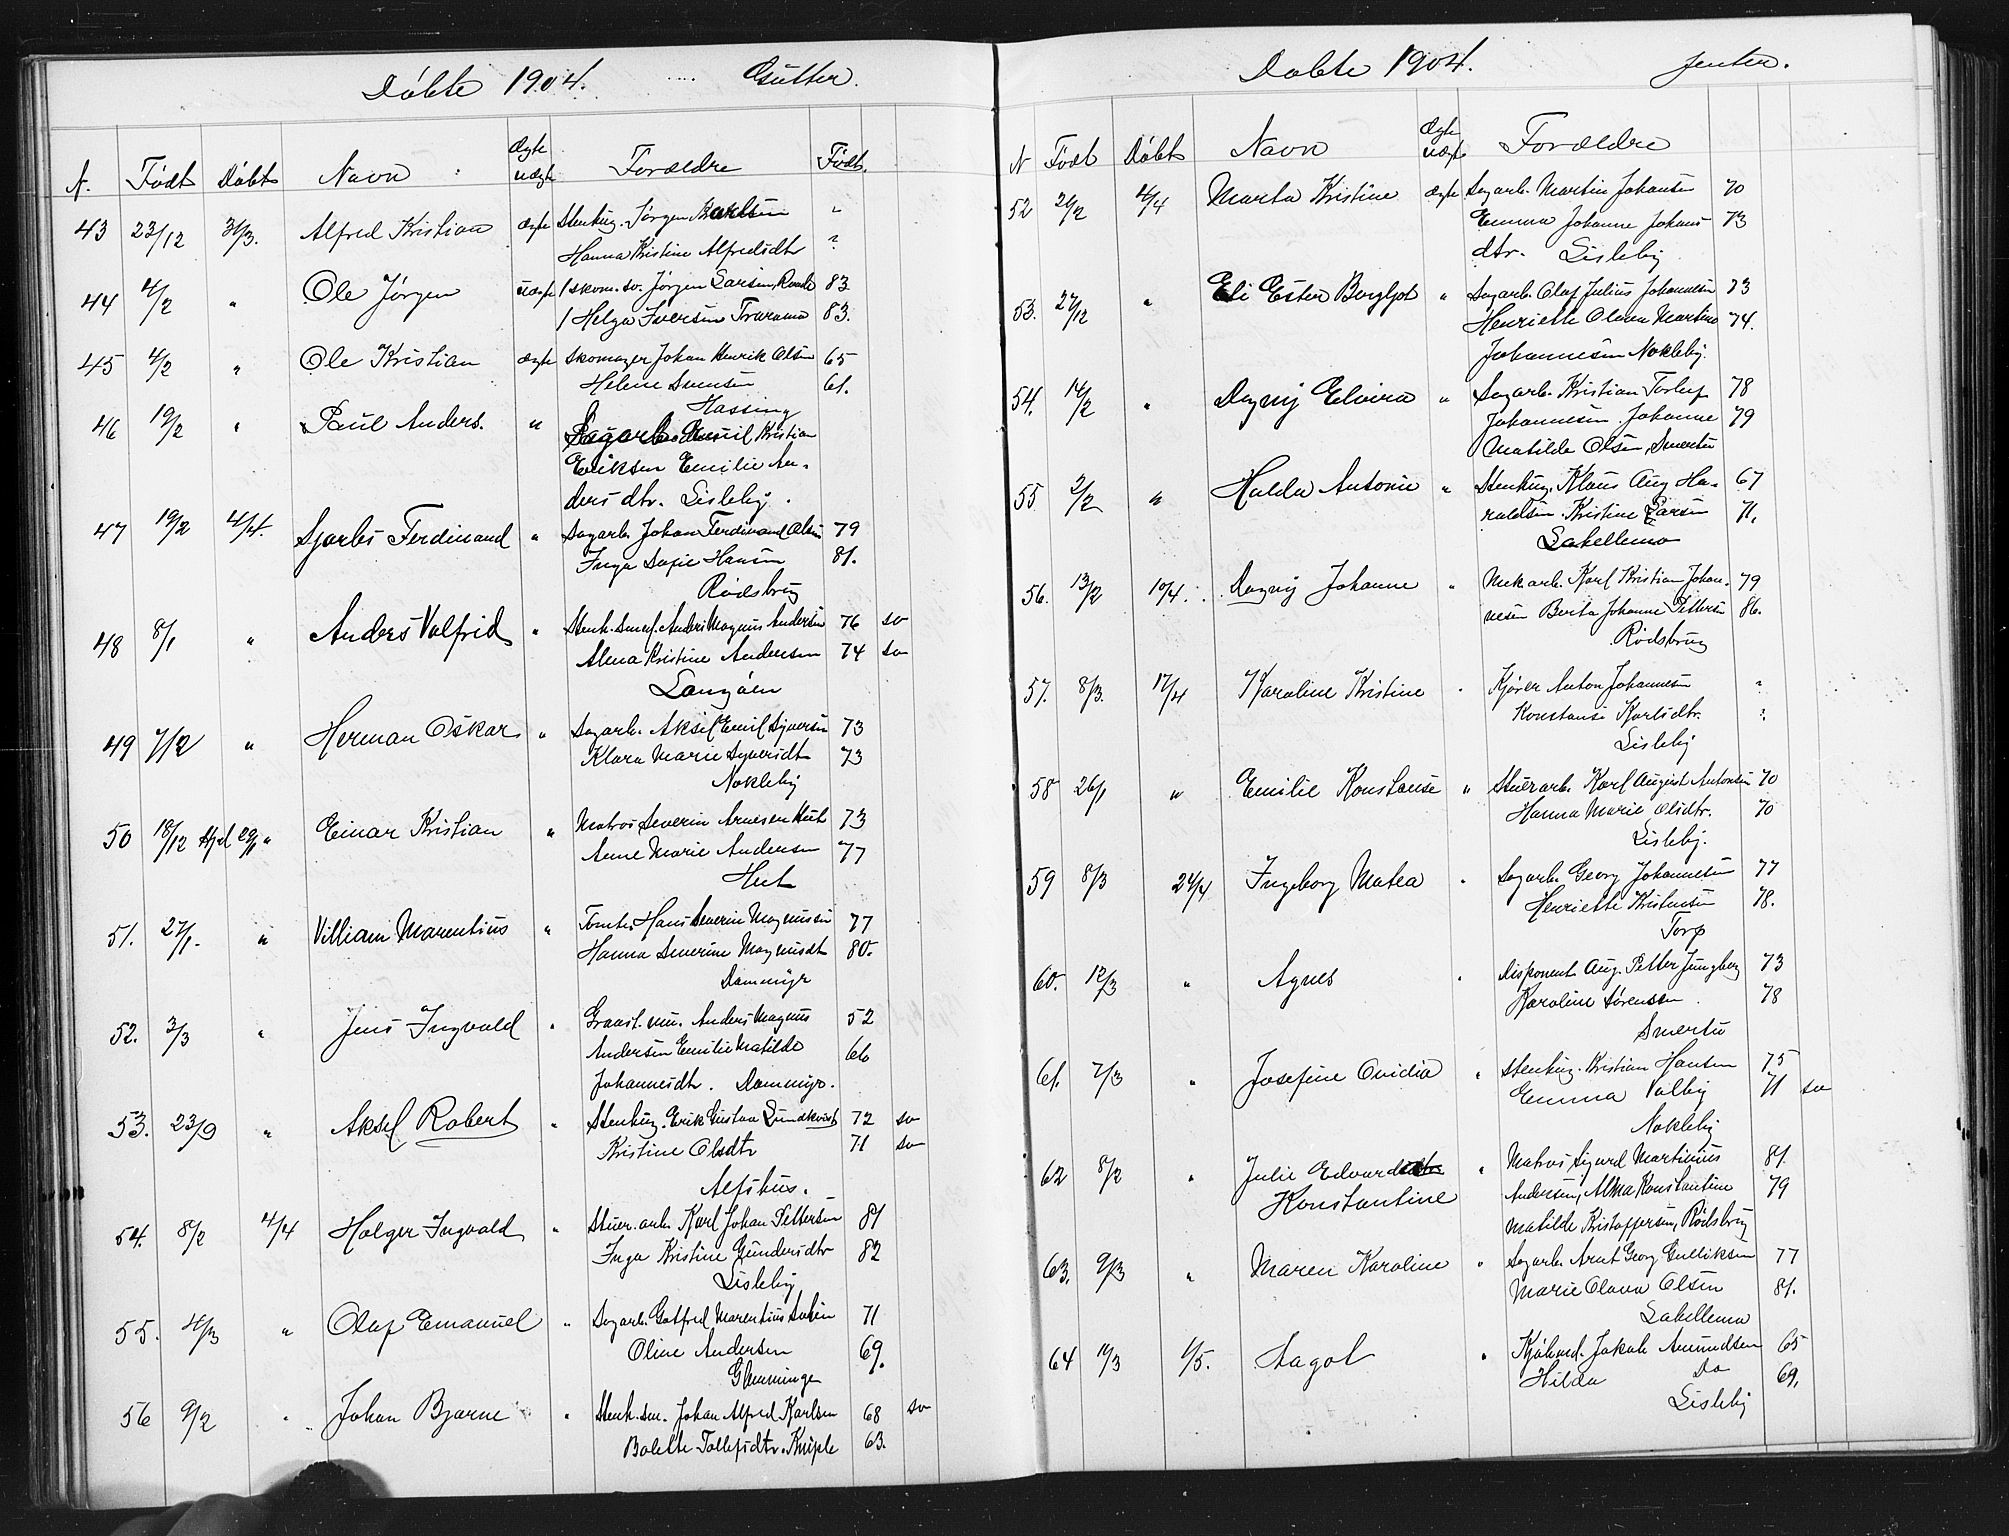 Döbte 1904. Gutter.
N. Födt Döbt Navn Ægte uægte Forældre Födt.
43 23/12 31/3. Alfred Kristian ægte Stenhug. Jørgen Karlsen "
Hanna Kristine Alfredsdtr ?
44 4/2 " Ole Jørgen uægte / skom. sv. Jørgen Larsen, Roade 83
/ Helga Iversen Trararna 83.
45 4/2 " Ole Kristian ægte Skomager Johan Henrik Olsen 65
Helene Svensen 61.
Hassing
46 19/2 " Paul Anders. " Sagarb. Emil Kristian
Eriksen Emilie An-
dersdtr. Lisleby.
47 19/2 4/4. Sjarles Ferdinand " Sagarb. Johan Ferdinand Olsen 79
Inga Sofie Hansen 81.
Rödsbrug
48 8/1 " Anders Valfrid " Stenh. Anders Magnus Andersen 76 sv
Alma Kristine Andersen 74 sv
Langöen
49 7/12 " Herman Oskar " Sagarb. Aksel Emil Syversen 73
Klara Marie Syversdtr 73
Nokleby
50 18/12 Hjd 29/1 " Einar Kristian " Matros Severin Arnesen Hut 73
Anne Marie Andersen 77
Hut
51. 27/1. " Villiam Marentius " Tomte. Hans Severin Magnussen 77
Hanna Severine Magnusdtr 80.
Dammyr
52. 3/3 " Jens Ingvald " Graast. Anders Magnus 52
Andersen Emilie Matilde 66
Johannesdtr. Dammyr.
53. 23/9 " Aksel Robert " Stenhug. Erik Gustav Lundkvist 72 sv
Kristine Olsdtr 71 sv
Alfshus.
54. 8/2 4/4 Holger Ingvald " Stuer. arb. Karl Johan Pettersen 81
Inga Kristine Gundersdtr 82
Lisleby
55. 4/3 " Olaf Emanuel " Sagarb. Gotfred Marentius 71
Oline Andersen 69.
Glemminge
56 9/2 " Johan Bjarne " Stenh. sm. Johan Alfred Karlsen 68 sv
Bolette Tollefsdtr. Kniple 63.
Dobte 1904. Jenter.
N Födt Döbt Navn Ægte uægt Forældre
52 26/2 4/4 Marta Kristine ægte Sagarb. Martin Johansen 70
Emma Johanne Johans 73
dtr. Lisleby
53. 27/12 " Eli Ester Bergljot " Sagarb. Olaf Julius Johannesen 73
Henriette Olava Martine 74.
Johannesen Nokleby.
54. 14/2 " Dagny Elvira " Sagarb. Kristian Torleif 78
Johannesen. Johanne 79
Matilde Olsen, Smertu
55 2/2 " Hulda Antonie " Stenhug. Klaus Aug Ha- 67
raldsen. Kristine Larsen 71.
Labellemo
56. 13/2 10/4. Dagny Johanne " Mekarb. Karl Kristian Johan- 79
nesen Berta Johanne Pettersen 86.
Rödsbrug
57. 8/3. 17/4 Karoline Kristine " Kjörer Anton Johannesen "
Konstanse Karlsdtr. ?
Lisleby
58 26/1 " Emilie Konstanse " Stuerarb. Karl August Antonsen 70
Hanna Marie Olsdtr. 70
Lisleby.
59 8/3 24/4 Ingeborg Matea " Sagarb. Georg Johannesen 77
Henriette Kristensen 78.
Torp
60. 12/3 " Agnes " Disponent Aug. Petter Jungberg 73
Karoline Sørensen. 78
Smertu
61. 7/3 " Josefine Ovidia " Stenhug. Kristian Hansen 75
Emma Valby 71 sv
Nokleby
62 8/2 " Julie Edvard " Matros Sigurd Martinius 81.
Konstantine Andersen, Alma Konstantine 79
Matilde Kristoffersen, Rödsbrug
63. 9/3 " Maren Karoline " Sagarb. Arnt Georg Gulliksen 77
Marie Olava Olsen 81.
Labellemo
64 11/3 1/5. Aagot " Kjöbmd. Jakob Amundsen 65
Hilda Do 69.
Lisleby